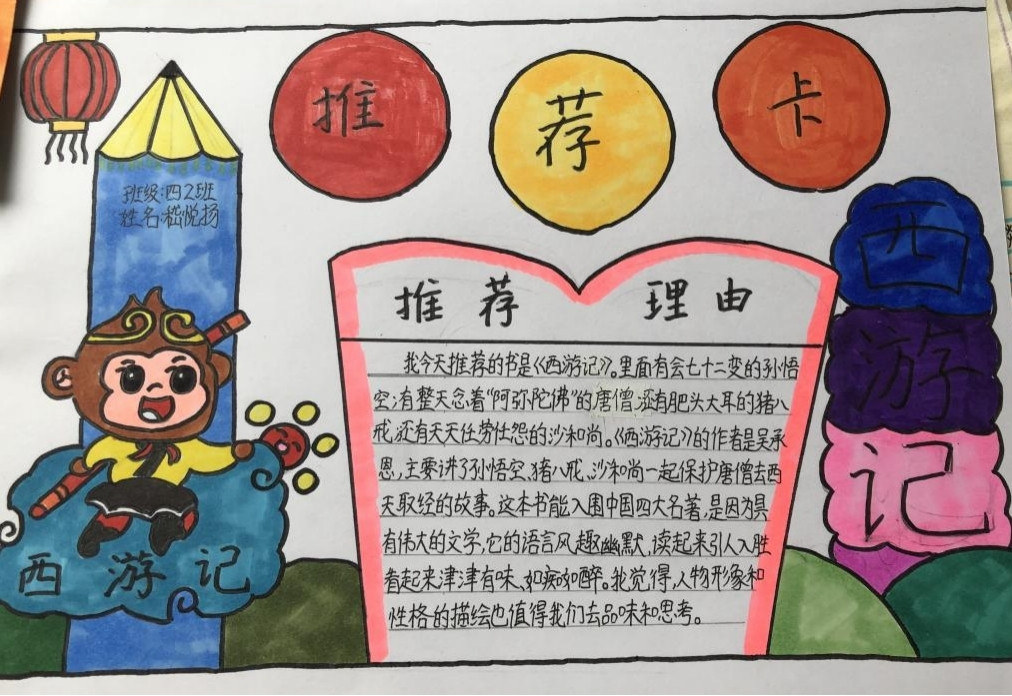 推荐卡
班级:四2班
姓名:嵇悦扬
西游记
推荐理由
我今天推荐的书是《西游记》。里面有会七十二变的孙悟
空;有整天念着“阿弥陀佛”的唐僧;还有肥头大耳的猪八
戒;还有天天任劳任怨的沙和尚。《西游记》的作者是吴承
恩,主要讲了孙悟空、猪八戒、沙和尚一起保护唐僧去西
天取经的故事。这本书能入围中国四大名著,是因为具
有伟大的文学,它的语言风趣幽默,读起来引人入胜
看起来津津有味、如痴如醉。我觉得,人物形象和
性格的描绘也值得我们去品味和思考。
西游记